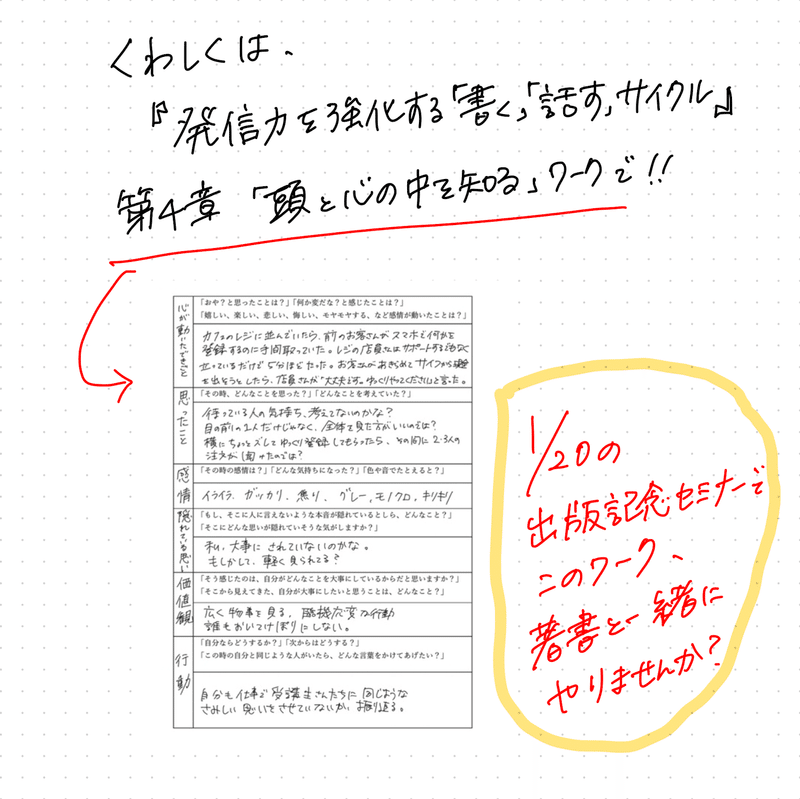 くわしくは、
『発信力を強化する「書く」「話す」サイクル』
第4章「頭と心の中を知る」ワークで!!
心が動いたできごと
「おや?と思ったことは?」「何か変だな?と感じたことは?」
「嬉しい、楽しい、悲しい、悔しい、モヤモヤする、など感情が動いたことは?」
カフェのレジに並んでいたら、前のお客さんがスマホで何かを
登録するのに手間取っていた。レジの店員さんはサポートするでもなく
立っているだけで5分ほどたった。お客さんがあきらめてサイフから
を出そうとしたら、店員さんが"大丈夫です。ゆっくりやってください"と言った。
思ったこと
「その時、どんなことを思った?」「どんなことを考えていた?」
待っている人の気持ち、考えてないのかな?
目の前の1人だけじゃなく、全体を見た方がいいのでは?
横にちょっとズレてゆっくり登録してもらったら、その間に2・3人の
注文が
感情
「その時の感情は?」「どんな気持ちになった?」「色や音でたとえると?」
イライラ、ガッカリ、焦り、グレー,モノクロ,キリキリ
隠れている思い
「もし、そこに人に言えないような本音が隠れているとしら、どんなこと?」
「そこにどんな思いが隠れていそうな気がしますか?」
私、大事にされていないのかな。
もしかして、軽く見られてる?
価値観
「そう感じたのは、自分がどんなことを大事にしているからだと思いますか?」
「そこから見えてきた、自分が大事にしたいと思うことは、どんなこと?」
広く物事を見る、臨機応変な行動
誰もおいてけぼりにしない。
行動
「自分ならどうするか?」「次からはどうする?」
「この時の自分と同じような人がいたら、どんな言葉をかけてあげたい?」
自分も仕事で受講生さんたちに同じような
さみしい思いをさせていないか、振り返る。
1/20の
出版記念セミナーで
このワーク、
著書と一緒に
やりませんか?